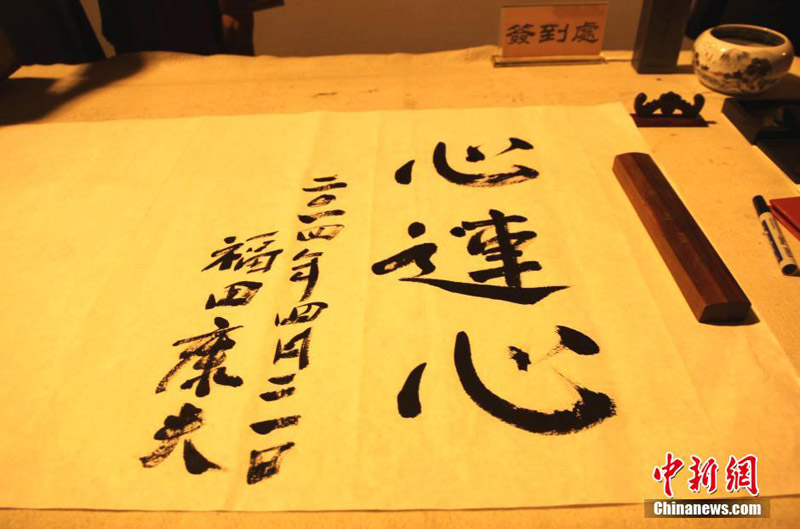 簽到處
心連心
二〇一四年四月二一日
福田康夫
中新網
Chinanews.com